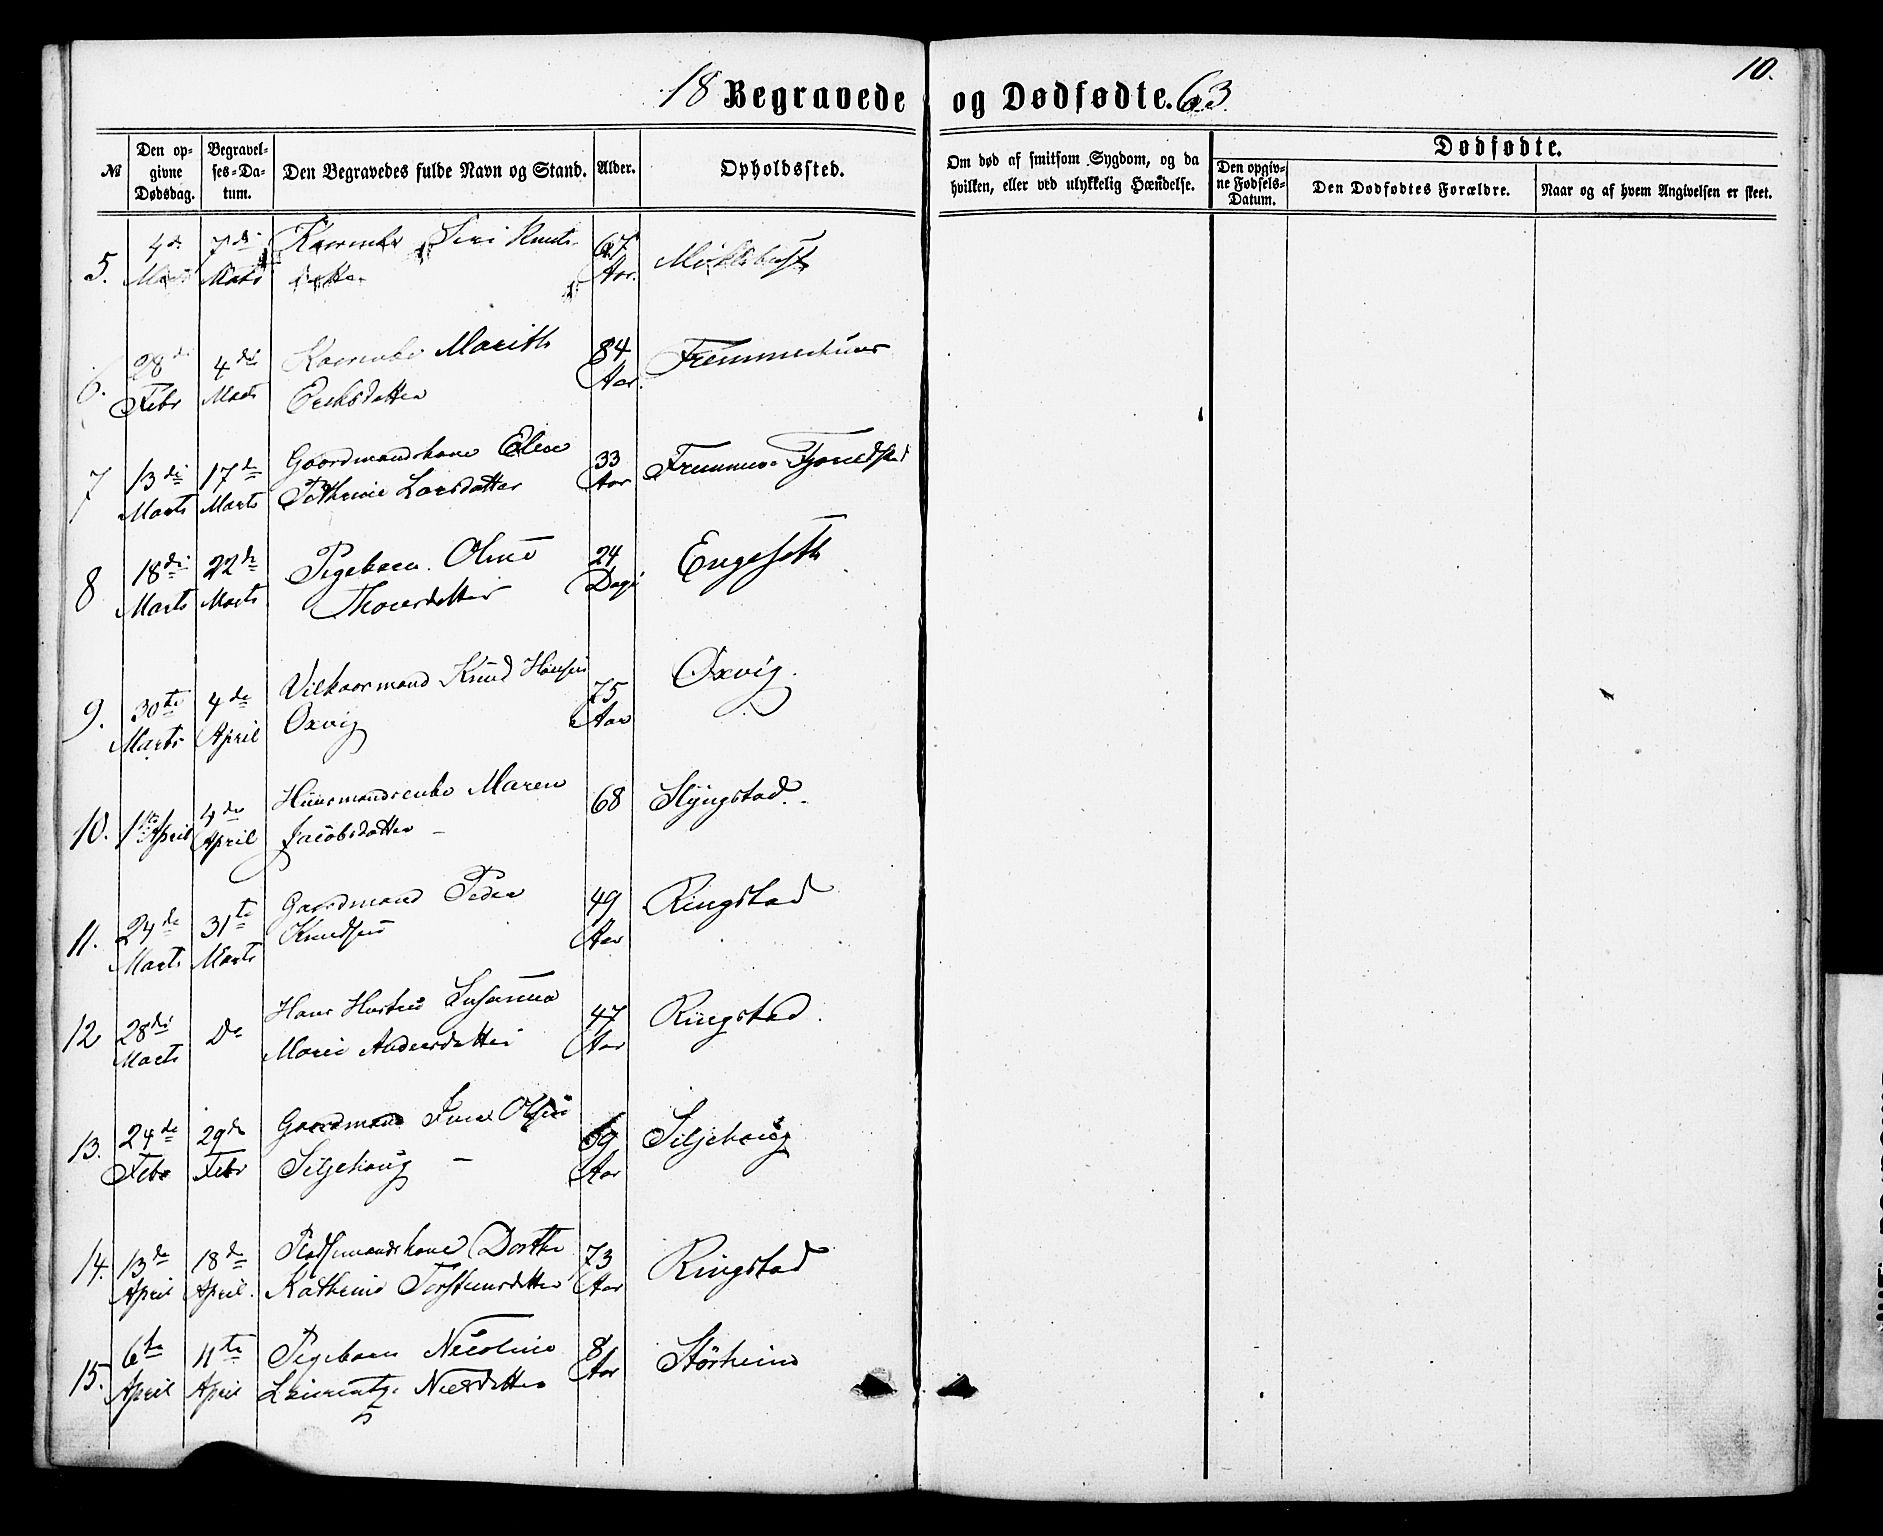 10.
18 Begravede og Dødfødte. 63.
№
Den opgivne Dødsdag.
Begravelses-Datum.
Den Begravedes fulde Navn og Stand.
Alder.
Opholdssted.
Om død af smitsom Sygdom, og da hvilken, eller ved ulykkelig Hændelse.
Dødfødte.
Den opgivne Fødsels-Datum.
Den Dødfødtes Forældre.
Naar og af hvem Angivelsen er skeet.
5. 4de Marts 7de Marts Kaarenke Siri Knuts- 67 Aar. Micklebust
datter
6. 28de Febr 4de Marts Kaarenke Marith 84 Aar.
Eriksdatter
7 13de Marts 17de Marts Gaardmandskone Elen 33 Aar
Larsdatter
8 18de Marts 22de Marts Pigebarn Oline 24 Dage Engeseth
9. 30te Marts 4de April Vilkaarmand Knud Hansen 75 Aar Oxvig.
Oxvig
10. 1ste April 4de April Huusmandsenke Maren 68 Slyngstad.
Jacobsdatter
11. 24de Marts 31te Marts Gaardmand Peder 49 Aar Ringstad
Knudsen
12 28de Marts Do Hans Hustru Susanna 47 Aar Ringstad.
Marie Andersdatter
13. 24de Febr 29de Febr Gaardmand Iver Olsen 69 Aar Siljehoug
Siljehoug
14. 13de April 18de April. Pladsmandskone Dorthe 73 Aar Ringstad
Kathrine Torstensdatter
15. 6te April 11te April Pigebarn Nicoline 8 Aar Störheim